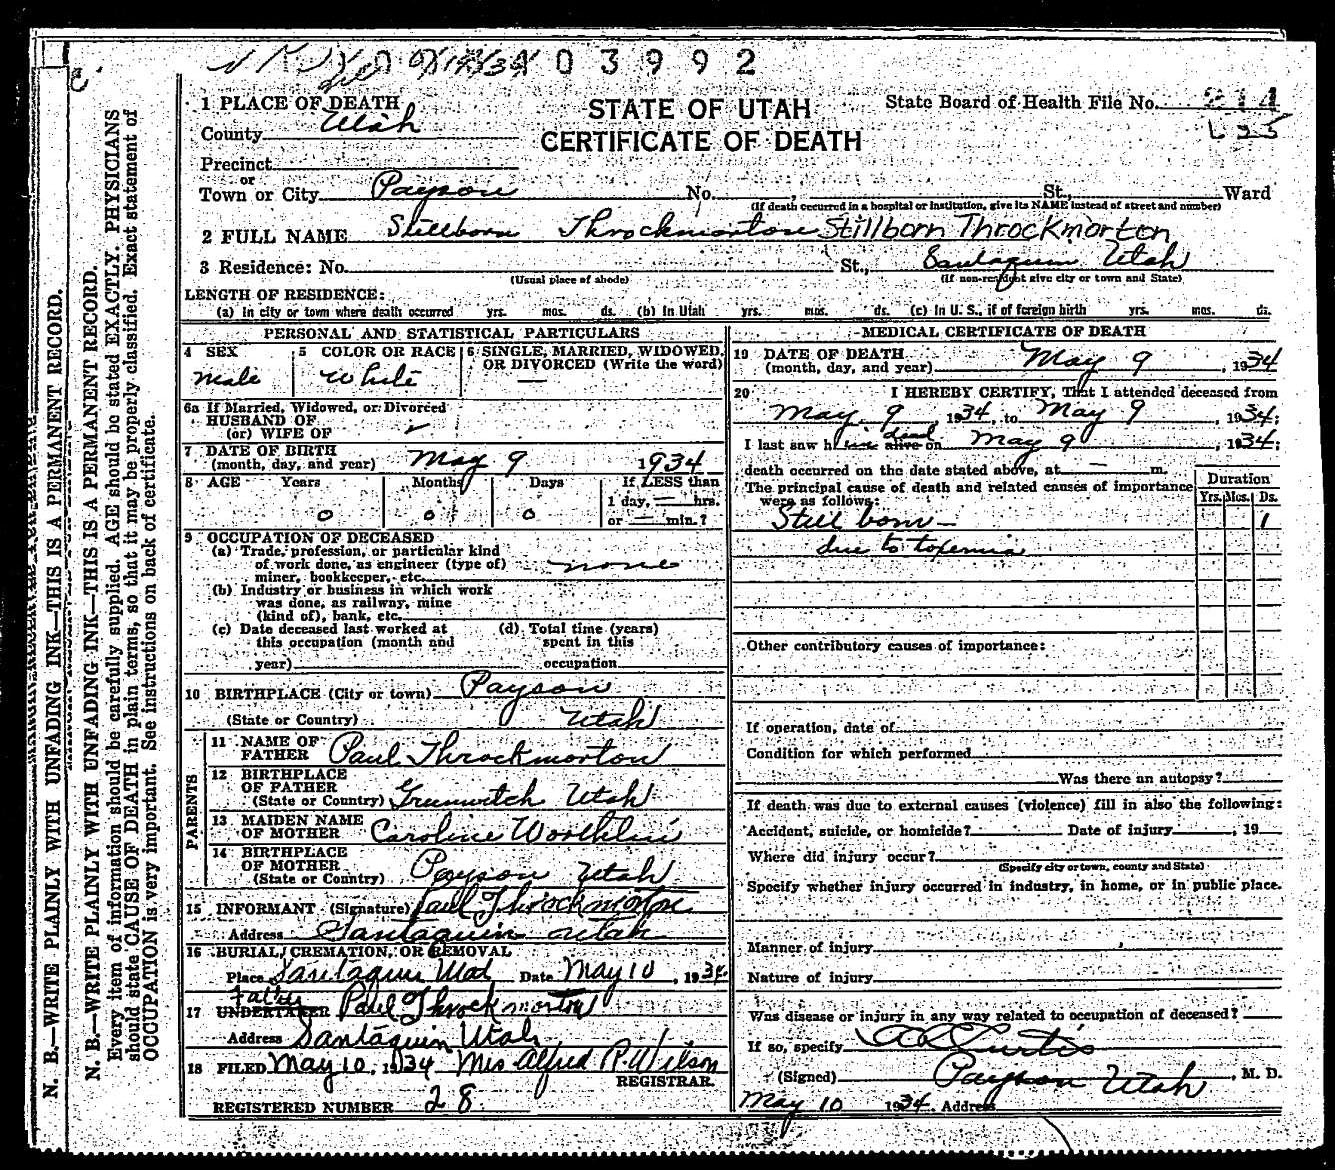 03992
1 PLACE OF DEATH
STATE OF UTAH
State Board of Health File No.
County Utah
CERTIFICATE OF DEATH
Precinct
or
Town or City Payson No. , St., Ward
(If death occurred in a hospital or institution, give its NAME instead of street and number)
2 FULL NAME Stillborn Throckmorton Stillborn Throckmorton
3 Residence: No. St., Santaquin Utah
(Usual place of abode) (If non-resident give city or town and State)
LENGTH OF RESIDENCE:
(a) In city or town where death occurred yrs. mos. ds. (b) In Utah yrs. mos. ds. (c) In U. S., if of foreign birth yrs. mos. ds.
PERSONAL AND STATISTICAL PARTICULARS
4 SEX 5 COLOR OR RACE 6 SINGLE, MARRIED, WIDOWED,
OR DIVORCED (Write the word)
Male White —
6a If Married, Widowed, or Divorced
HUSBAND OF
(or) WIFE OF
7 DATE OF BIRTH
(month, day, and year) May 9 1934
8 AGE Years Months Days If LESS than
1 day, — hrs.
0 0 0 or — min.?
9 OCCUPATION OF DECEASED
(a) Trade, profession, or particular kind
of work done, as engineer (type of)
miner, bookkeeper, etc. none
(b) Industry or business in which work
was done, as railway, mine
(kind of), bank, etc.
(c) Date deceased last worked at (d) Total time (years)
this occupation (month and spent in this
year) occupation
10 BIRTHPLACE (City or town) Payson
(State or Country) Utah
PARENTS
11 NAME OF
FATHER Paul Throckmorton
12 BIRTHPLACE
OF FATHER
(State or Country) Greenwitch Utah
13 MAIDEN NAME
OF MOTHER Caroline Worthlin
14 BIRTHPLACE
OF MOTHER
(State or Country) Payson Utah
15 INFORMANT (Signature) Paul Throckmorton
Address Santaquin Utah
16 BURIAL, CREMATION, OR REMOVAL
Place Santaquin Utah Date May 10, 1934
Father
17 UNDERTAKER Paul Throckmorton
Address Santaquin Utah
18 FILED May 10, 1934 Mrs Alfred P. Wilson
REGISTRAR.
REGISTERED NUMBER 28.
MEDICAL CERTIFICATE OF DEATH
19 DATE OF DEATH
(month, day, and year) May 9, 1934
20 I HEREBY CERTIFY, That I attended deceased from
May 9 1934, to May 9, 1934;
dead
I last saw him alive on May 9, 1934;
death occurred on the date stated above, at — m.
The principal cause of death and related causes of importance
were as follows:
Duration
Yrs. Mos. Ds.
Still born — 1
due to toxemia
Other contributory causes of importance:
If operation, date of
Condition for which performed
Was there an autopsy?
If death was due to external causes (violence) fill in also the following:
Accident, suicide, or homicide? Date of injury , 19
Where did injury occur?
(Specify city or town, county and State)
Specify whether injury occurred in industry, in home, or in public place.
Manner of injury
Nature of injury
Was disease or injury in any way related to occupation of deceased?
If so, specify
(Signed) Curtis, M. D.
May 10 1934, Address Payson Utah
N. B.—WRITE PLAINLY WITH UNFADING INK—THIS IS A PERMANENT RECORD.
N. B.—WRITE PLAINLY WITH UNFADING INK—THIS IS A PERMANENT RECORD.
Every item of information should be carefully supplied. AGE should be stated EXACTLY. PHYSICIANS
should state CAUSE OF DEATH in plain terms, so that it may be properly classified. Exact statement of
OCCUPATION is very important. See instructions on back of certificate.